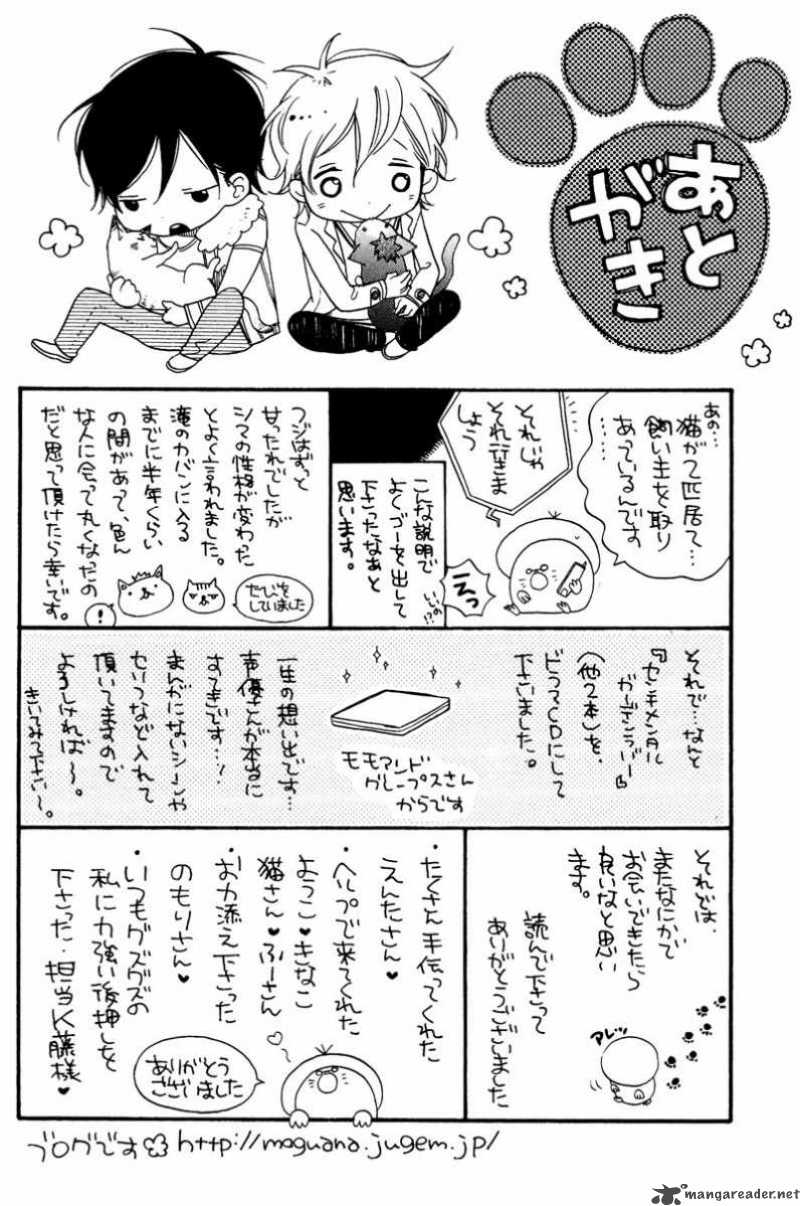 あと
がき
あの…
猫が2匹居て…
飼い主を取り
あっているんです
それじゃ
それ行きま
しょう
えっ
いいの!?
こんな説明で
よくゴーを出して
下さったなあと
思います。
フジはずっと
甘ったれでしたが
シマの性格が変わった
とよく言われました。
滝のカバンに入る
までに半年くらい
の間があって、色ん
な人に会って丸くなったの
だと思って頂けたら幸いです。
たびを
していました
!
それで…なんと
『センチメンタル
ガーデンラバー』
(他2本)を、
ドラマCDにして
下さいました。
モモアンド
グレープスさん
からです
一生の想い出です…
声優さんが本当に
すてきです…!
まんがにないシーンや
セリフなど入れて
頂いてますので
よろしければ〜。
きいてみて下さい〜。
それでは、
またなにかで
お会いできたら
良いなと思い
ます。
読んで下さって
ありがとうございました
アレッ
・たくさん手伝ってくれた
えんたさん♥
・ヘルプで来てくれた
ようこ♥きなこ
猫さん♥ふーさん
・お力添え下さった
のもりさん♥
・いつもグズグズの
私に力強い後押しを
下さった・担当K藤様♥
ありがとう
ございました
ブログです http://moguana.jugem.jp/
mangareader.net